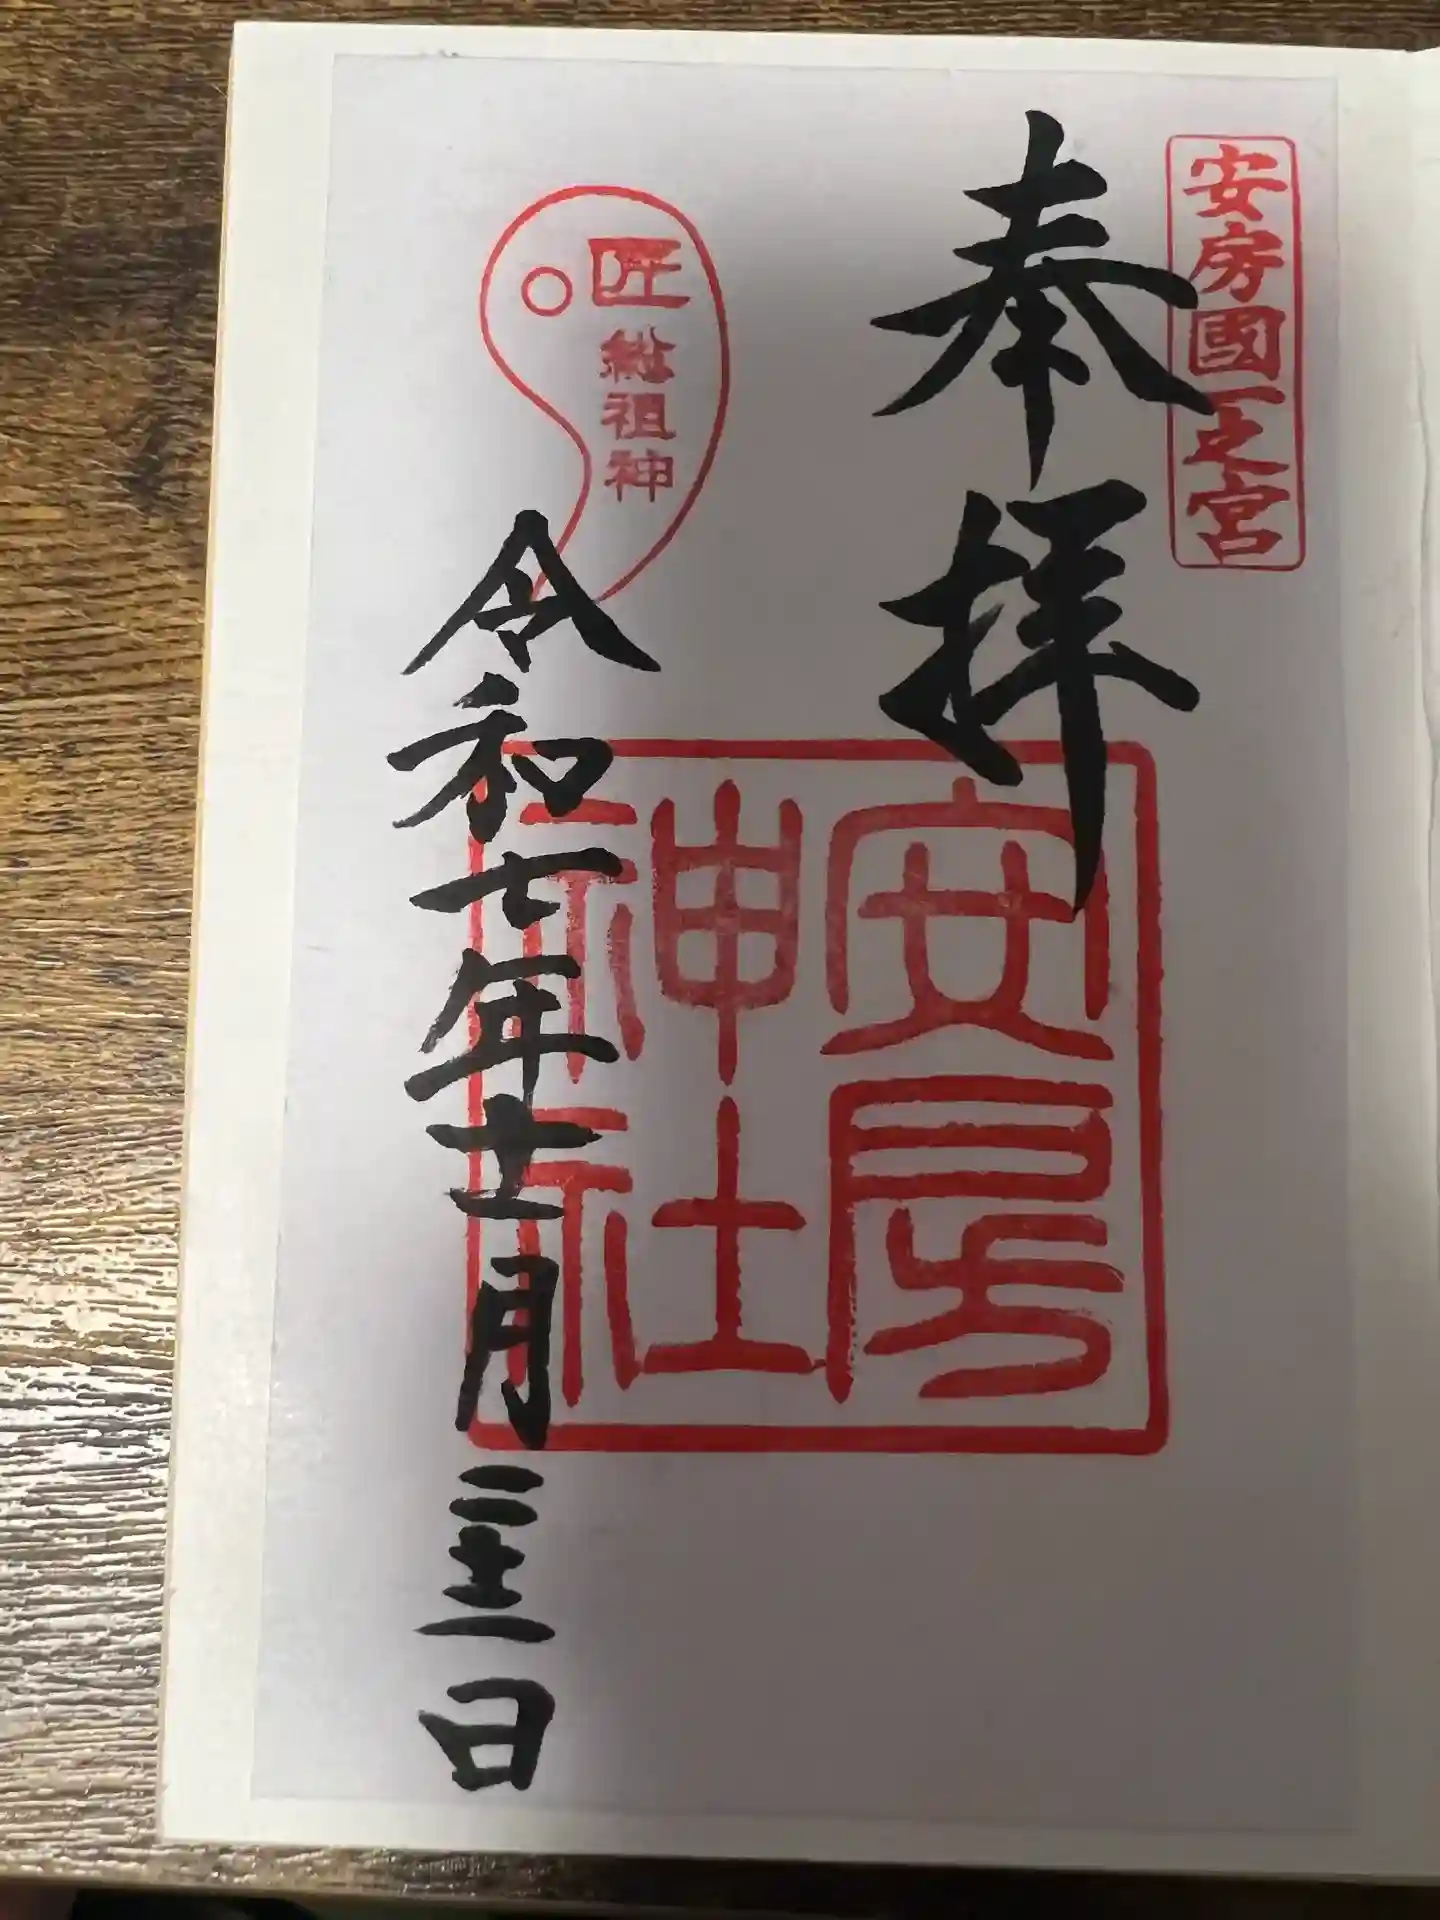 安房國一之宮
奉拝
安房
神社
匠
総祖神
令和七年十一月二十三日